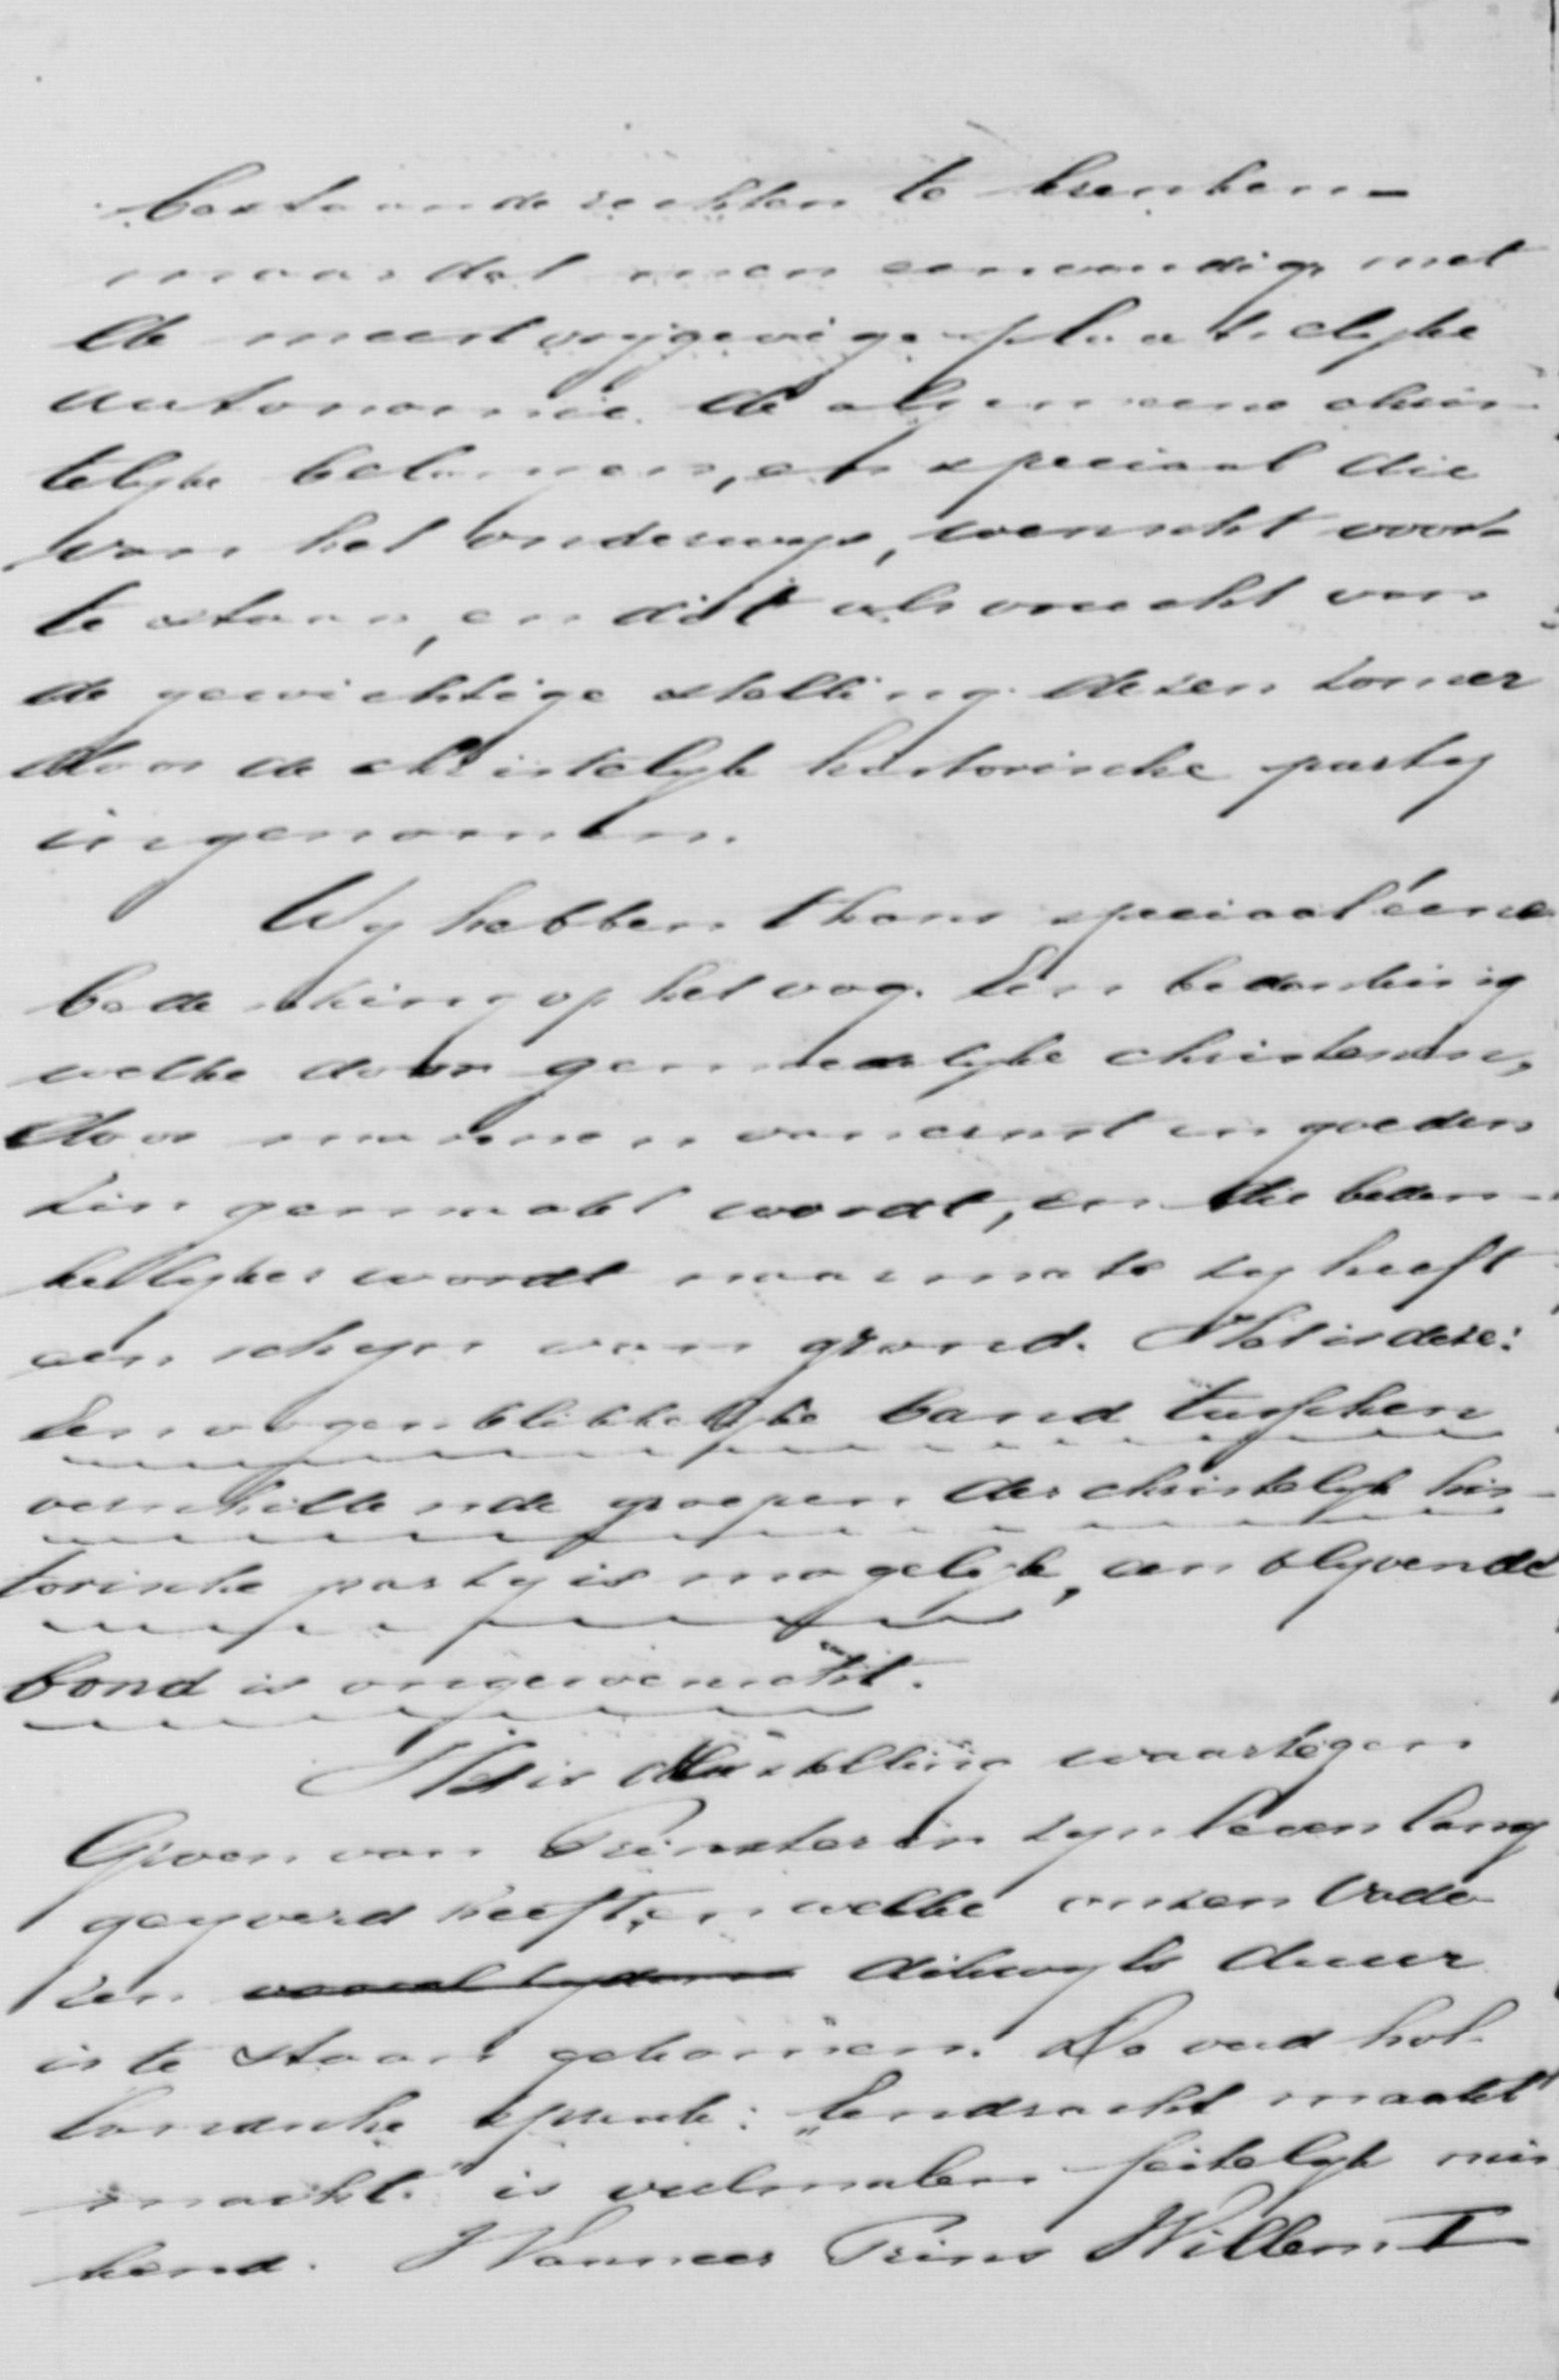 bestaande rechten te krenken –
maar dat men eenvoudig met
de meest vrijgevige plaatselyke
autonomie de algemeene chris-
telyke belangen, en speciaal die
van het onderwys, wenscht voor
te staan, en dit als vrucht van
de gewichtige stelling dezen zomer
door de christelyk historische party
ingenomen.
Wy hebben thans speciaal ééne
bedenking op het oog. Een bedenking
welke door gemoedelyke christenen,
door mannen van ernst en goeden
zin gemaakt wordt, en die beden-
kelyker wordt naarmate zy heeft
een schyn van grond. Het is deze:
Een oogenblikkelyke band tusschen
verschillende groepen der christelyk his-
torische party is mogelyk, een blyvende
bond is ongewenscht.
Het is die stelling waartegen
Groen van Prinsterer zyn leven lang
geyverd heeft, en welke onzen Vade
ren dikwyls duur
is te staan gekomen. De oud hol-
landsche spreuk: „Eendracht maakt
macht." is veelmalen feitelyk mis
kend. Wanneer Prins Willem I